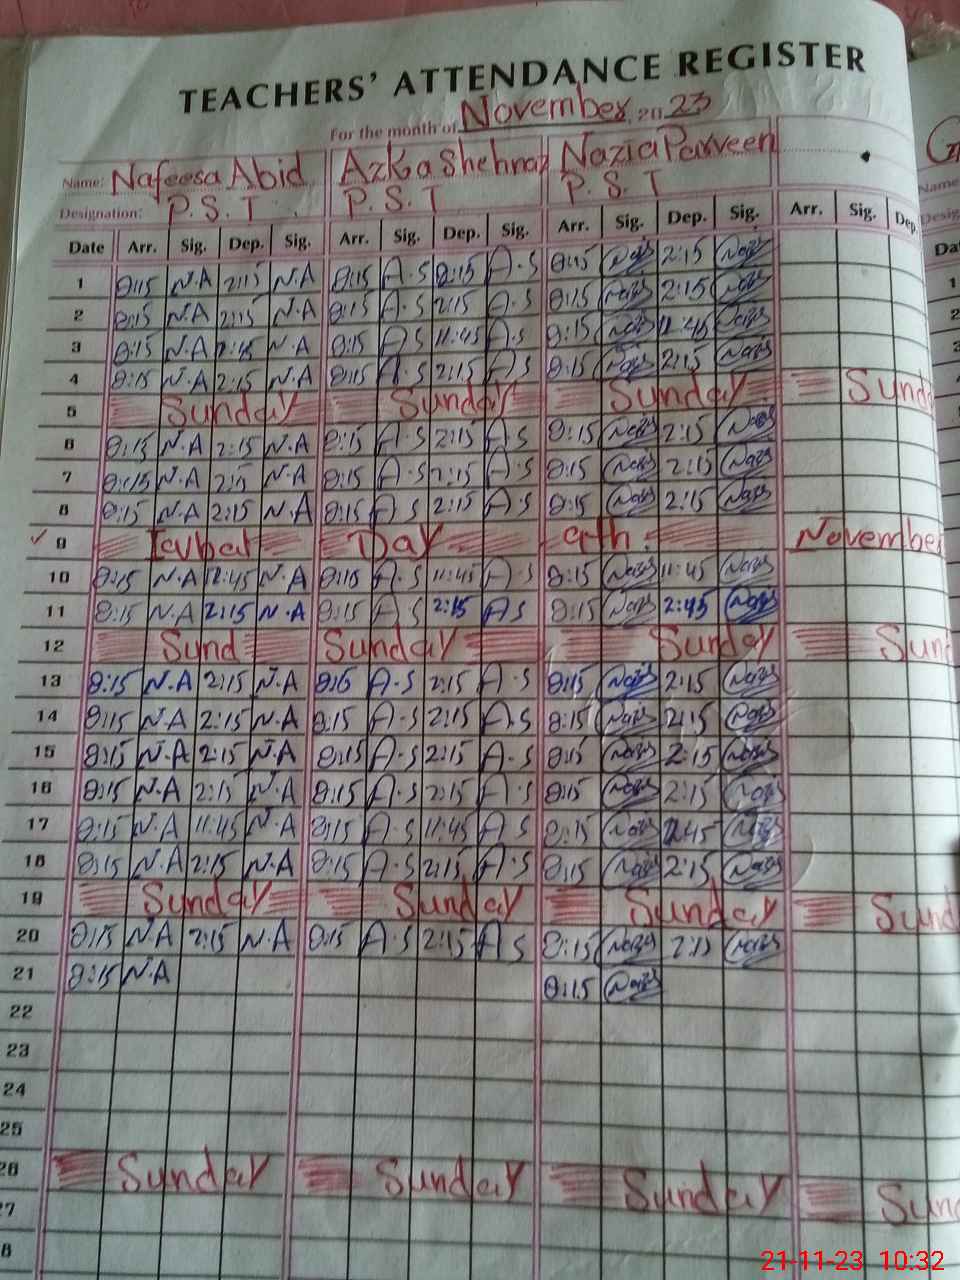 TEACHERS' ATTENDANCE REGISTER
For the month of November, 2023
Name: Nafeesa Abid Azka Shehnaz Nazia Parveen
Designation: P.S.T P.S.T P.S.T
Date Arr. Sig. Dep. Sig. Arr. Sig. Dep. Sig. Arr. Sig. Dep. Sig. Arr. Sig. Dep.
1 8:15 N.A 2:15 N.A 8:15 A.S 2:15 A.S 8:15 Nazs 2:15 Nazs
2 8:15 N.A 2:15 N.A 8:15 A.S 2:15 A.S 8:15 Nazs 2:15 Nazs
3 8:15 N.A N.A 8:15 A.S 11:45 A.S 8:15 Nazs 11:45 Nazs
4 8:15 N.A 2:15 N.A 8:15 A.S 2:15 A.S 8:15 Nazs 2:15 Nazs
5 Sunday Sunday Sunday Sund
6 8:15 N.A 2:15 N.A 8:15 A.S 2:15 A.S 8:15 Nazs 2:15 Nazs
7 8:15 N.A 2:15 N.A 8:15 A.S 2:15 A.S 8:15 Nazs 2:15 Nazs
8 8:15 N.A 2:15 N.A 8:15 A.S 2:15 A.S 8:15 Nazs 2:15 Nazs
9 Iqbal Day 9th. November
10 8:15 N.A 11:45 N.A 8:15 A.S 11:45 A.S 8:15 Nazs 11:45 Nazs
11 8:15 N.A 2:15 N.A 8:15 A.S 2:15 A.S 8:15 Nazs 2:45 Nazs
12 Sund Sunday Sunday Sun
13 8:15 N.A 2:15 N.A 8:15 A.S 2:15 A.S 8:15 Nazs 2:15 Nazs
14 8:15 N.A 2:15 N.A 8:15 A.S 2:15 A.S 8:15 Nazs 2:15 Nazs
15 8:15 N.A 2:15 N.A 8:15 A.S 2:15 A.S 8:15 Nazs 2:15 Nazs
16 8:15 N.A 2:15 N.A 8:15 A.S 2:15 A.S 8:15 Nazs 2:15 Nazs
17 8:15 N.A 11:45 N.A 8:15 A.S 11:45 A.S 8:15 Nazs Nazs
18 8:15 N.A 2:15 N.A 8:15 A.S 2:15 A.S 8:15 Nazs 2:15 Nazs
19 Sunday Sunday Sunday Sund
20 8:15 N.A 2:15 N.A 8:15 A.S 2:15 A.S 8:15 Nazs 2:15 Nazs
21 8:15 N.A 8:15 Nazs
22
23
24
25
26 Sunday Sunday Sunday Sun
27
8
21-11-23 10:32